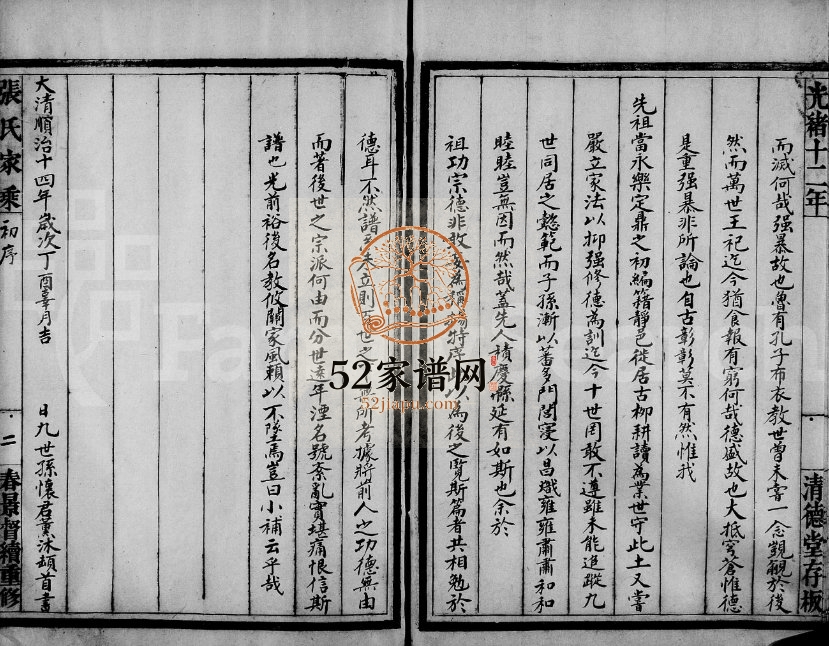 光緒十二年
清德堂存板
而滅何哉强暴故也魯有孔子布衣教世曾未嘗一念覬覦於後
然而萬世王祀迄今猶食報有窮何哉德盛故也大抵穹蒼惟德
是重强暴非所論也自古彰彰莫不有然惟我
先祖當永樂定鼎之初編籍靜邑徙居古柳耕讀為業世守此土又嘗
嚴立家法以抑强修德為訓迄今十世罔敢不遵雖未能追蹤九
世同居之懿範而子孫漸以蕃多門閭寖以昌熾雍雍肅肅和和
睦睦豈無因而然哉蓋先人積慶緜延有如斯也余於
祖功宗德非敢妄為揚特序以為後之覽斯篇者共相勉於
德耳不然譜未立則世之無所考據將前人之功德無由
而著後世之宗派何由而分世遠年湮名號紊亂實堪痛恨信斯
譜也光前裕後名教攸關家風賴以不墜焉豈曰小補云乎哉
大清順治十四年歲次丁酉辜月吉
日九世孫懷君薰沐頓首書
張氏家乘
初序
二
春景督續重修
52家谱网
52jiapu.com